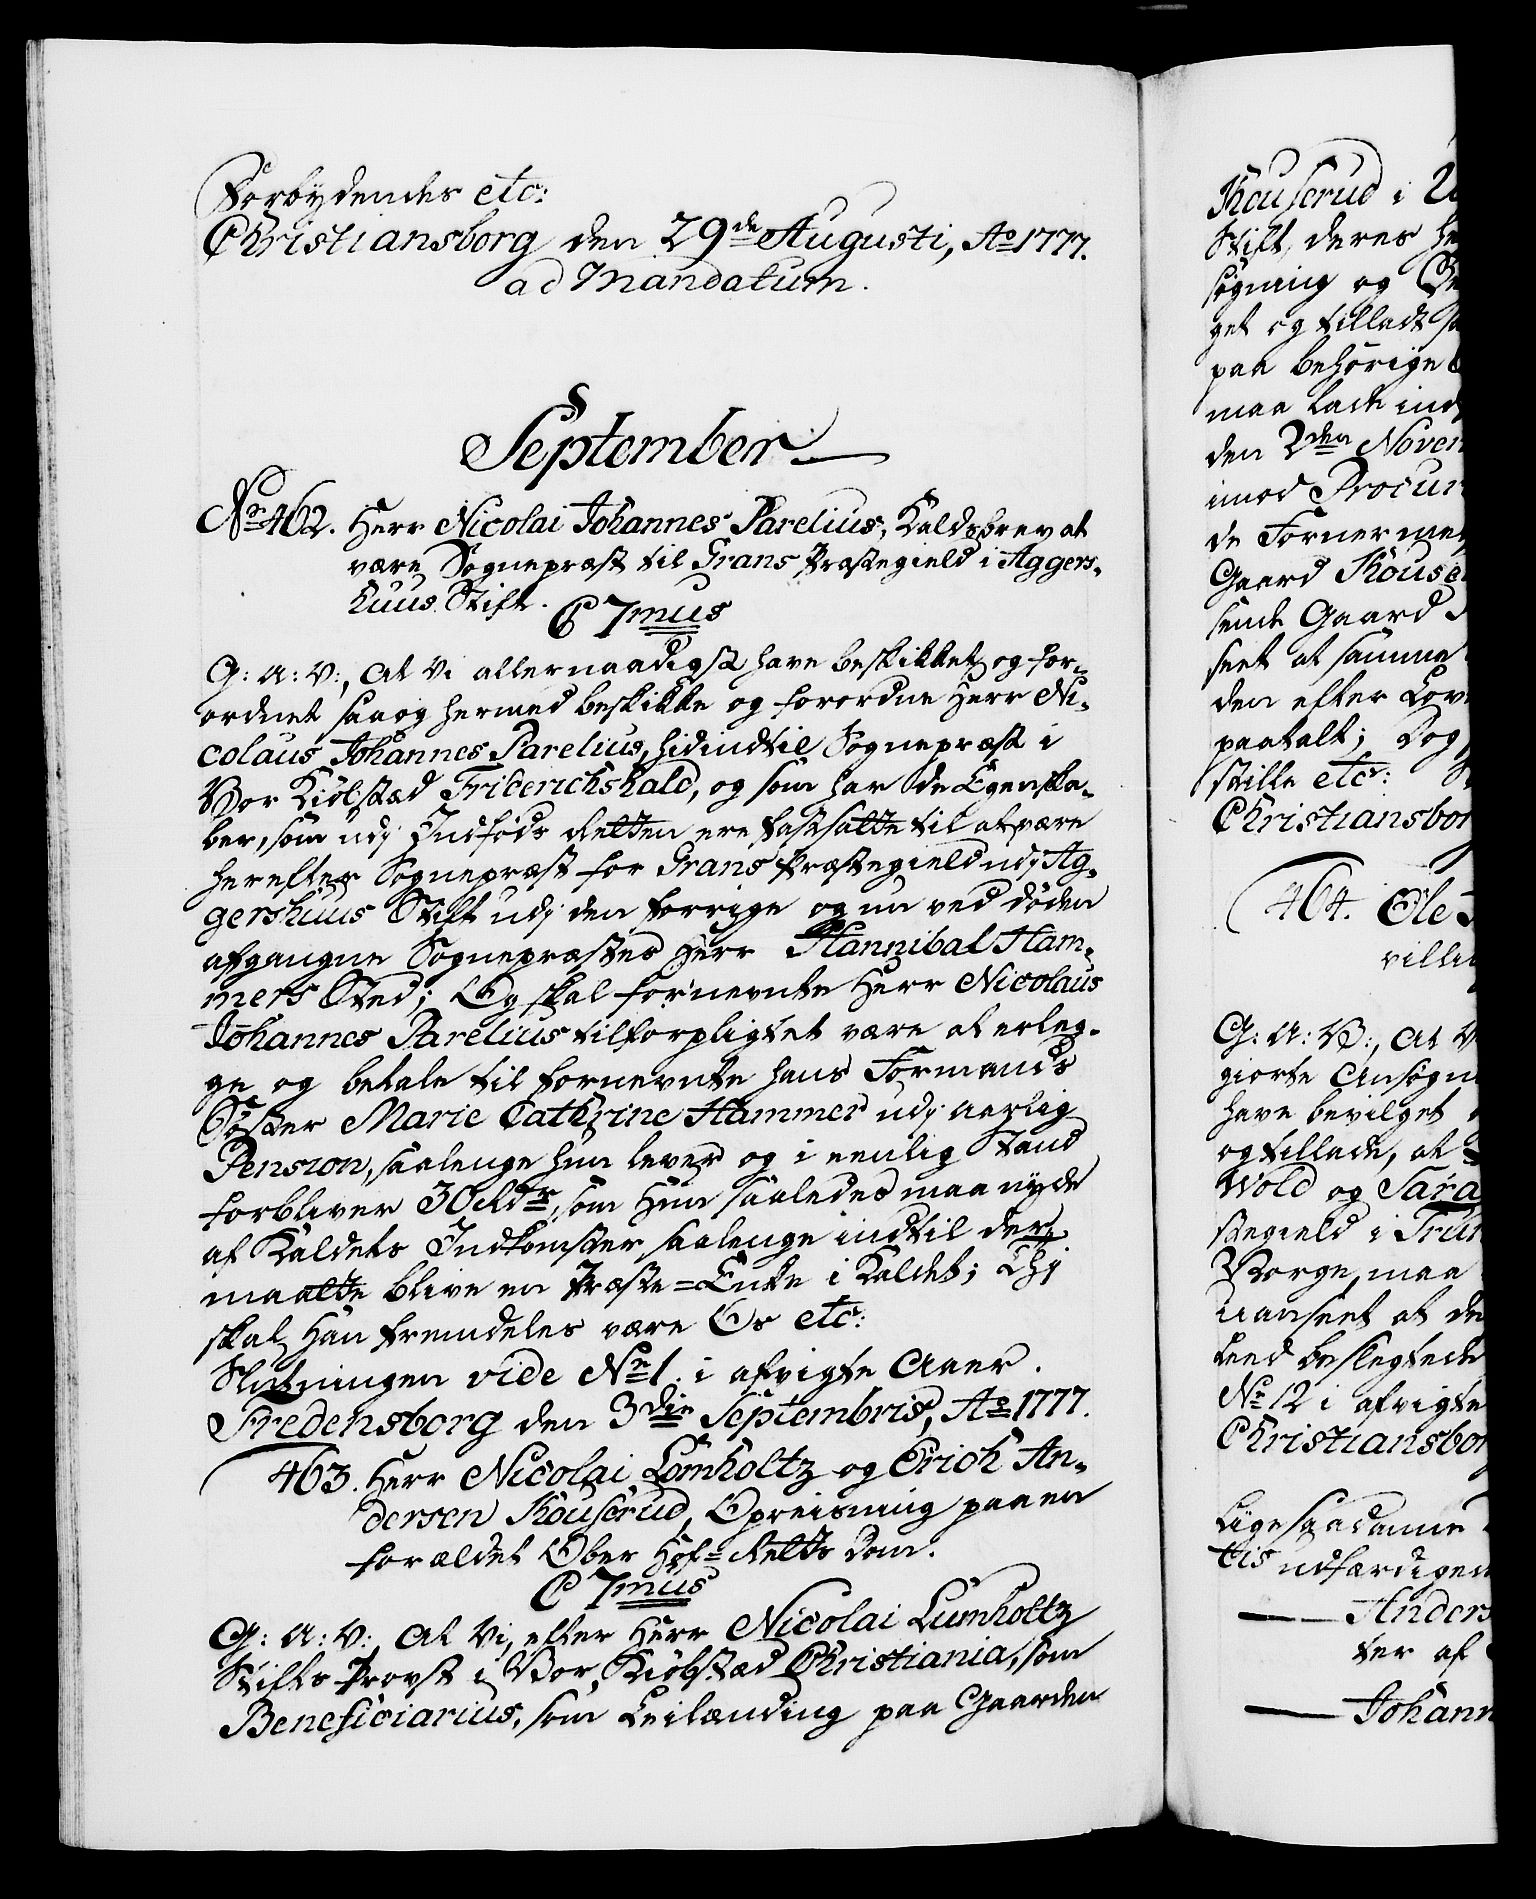 Forbydendes etc:
Christiansborg den 29de Augusti, Ao 1777.
ad Mandatum.
September
No 462. Herr Nicolai Johannes Parelius, Kaldsbrev at
være Sognepræst til Grans Præstegield i Aggers-
huus Stift.
C 7mus
G: A: V:, At Vi allernaadigst have beskikket og for-
ordnet saa og hermed beskikke og forordne Herr Ni-
colaus Johannes Parelius, hidindtil Sognepræst i
Vor Kiøbstæd Friderichshald, og som har de Egenska-
ber, som udj Indføds Retten ere fastsatte til at være
herefter Sognepræst for Grans Præstegield udj Ag-
gershuus Stift udj den forrige og nu ved døden
afgangne Sognepræstes Herr Hannibal Ham-
mers Sted; Og skal fornevnte Herr Nicolaus
Johannes Parelius tilforpligtet være at erleg-
ge og betale til fornevnte hans Formands
Søster Marie Cathrine Hammer udj aarlig
Pension, saalenge hun lever og i eenlig Stand
forbliver 30 Rdr, som hun saaledes maa nyde
af Kaldets Indkomster, saalenge indtil der
maatte blive en Præste=Enke i Kaldet; Thj
skal Han fremdeles være Os etc:
Slutningen vide No 1. i afvigte Aaer.
Fredensborg den 3die Septembris, Ao 1777.
463. Herr Nicolai Lomholtz og Erich An-
dersen Kouserud, Opreisning paa en
forældet Ober Hof=Retts Dom.
C 7mus
G: A: V:, At Vi, efter Herr Nicolai Lumholtz
Stifts Provst i Vor Kiøbstæd Christiania, som
Beneficiarius, som Leilænding paa Gaarden
Kouserud i
Stift, deres
søgning og
get og tilladt
paa behørige
maa lade ind
den 2den Noven
imod Procur
de Fornermel
Gaard Kouse
sende Gaard
seet at samme
den efter Lov
paatalt; Dog
stille etc:
Christiansbor
464. Ole
villi
G: A: V:, At V
giorte Ansøgn
have bevilget
og tillade, at
Wold og Sara
stegield i Trun
Borge, maa
uanseet at de
leed beslegtede
No 12 i afvigte
Christiansbor
Ligesaadanne
tis udfærdigen
Anders
ter af
Johann